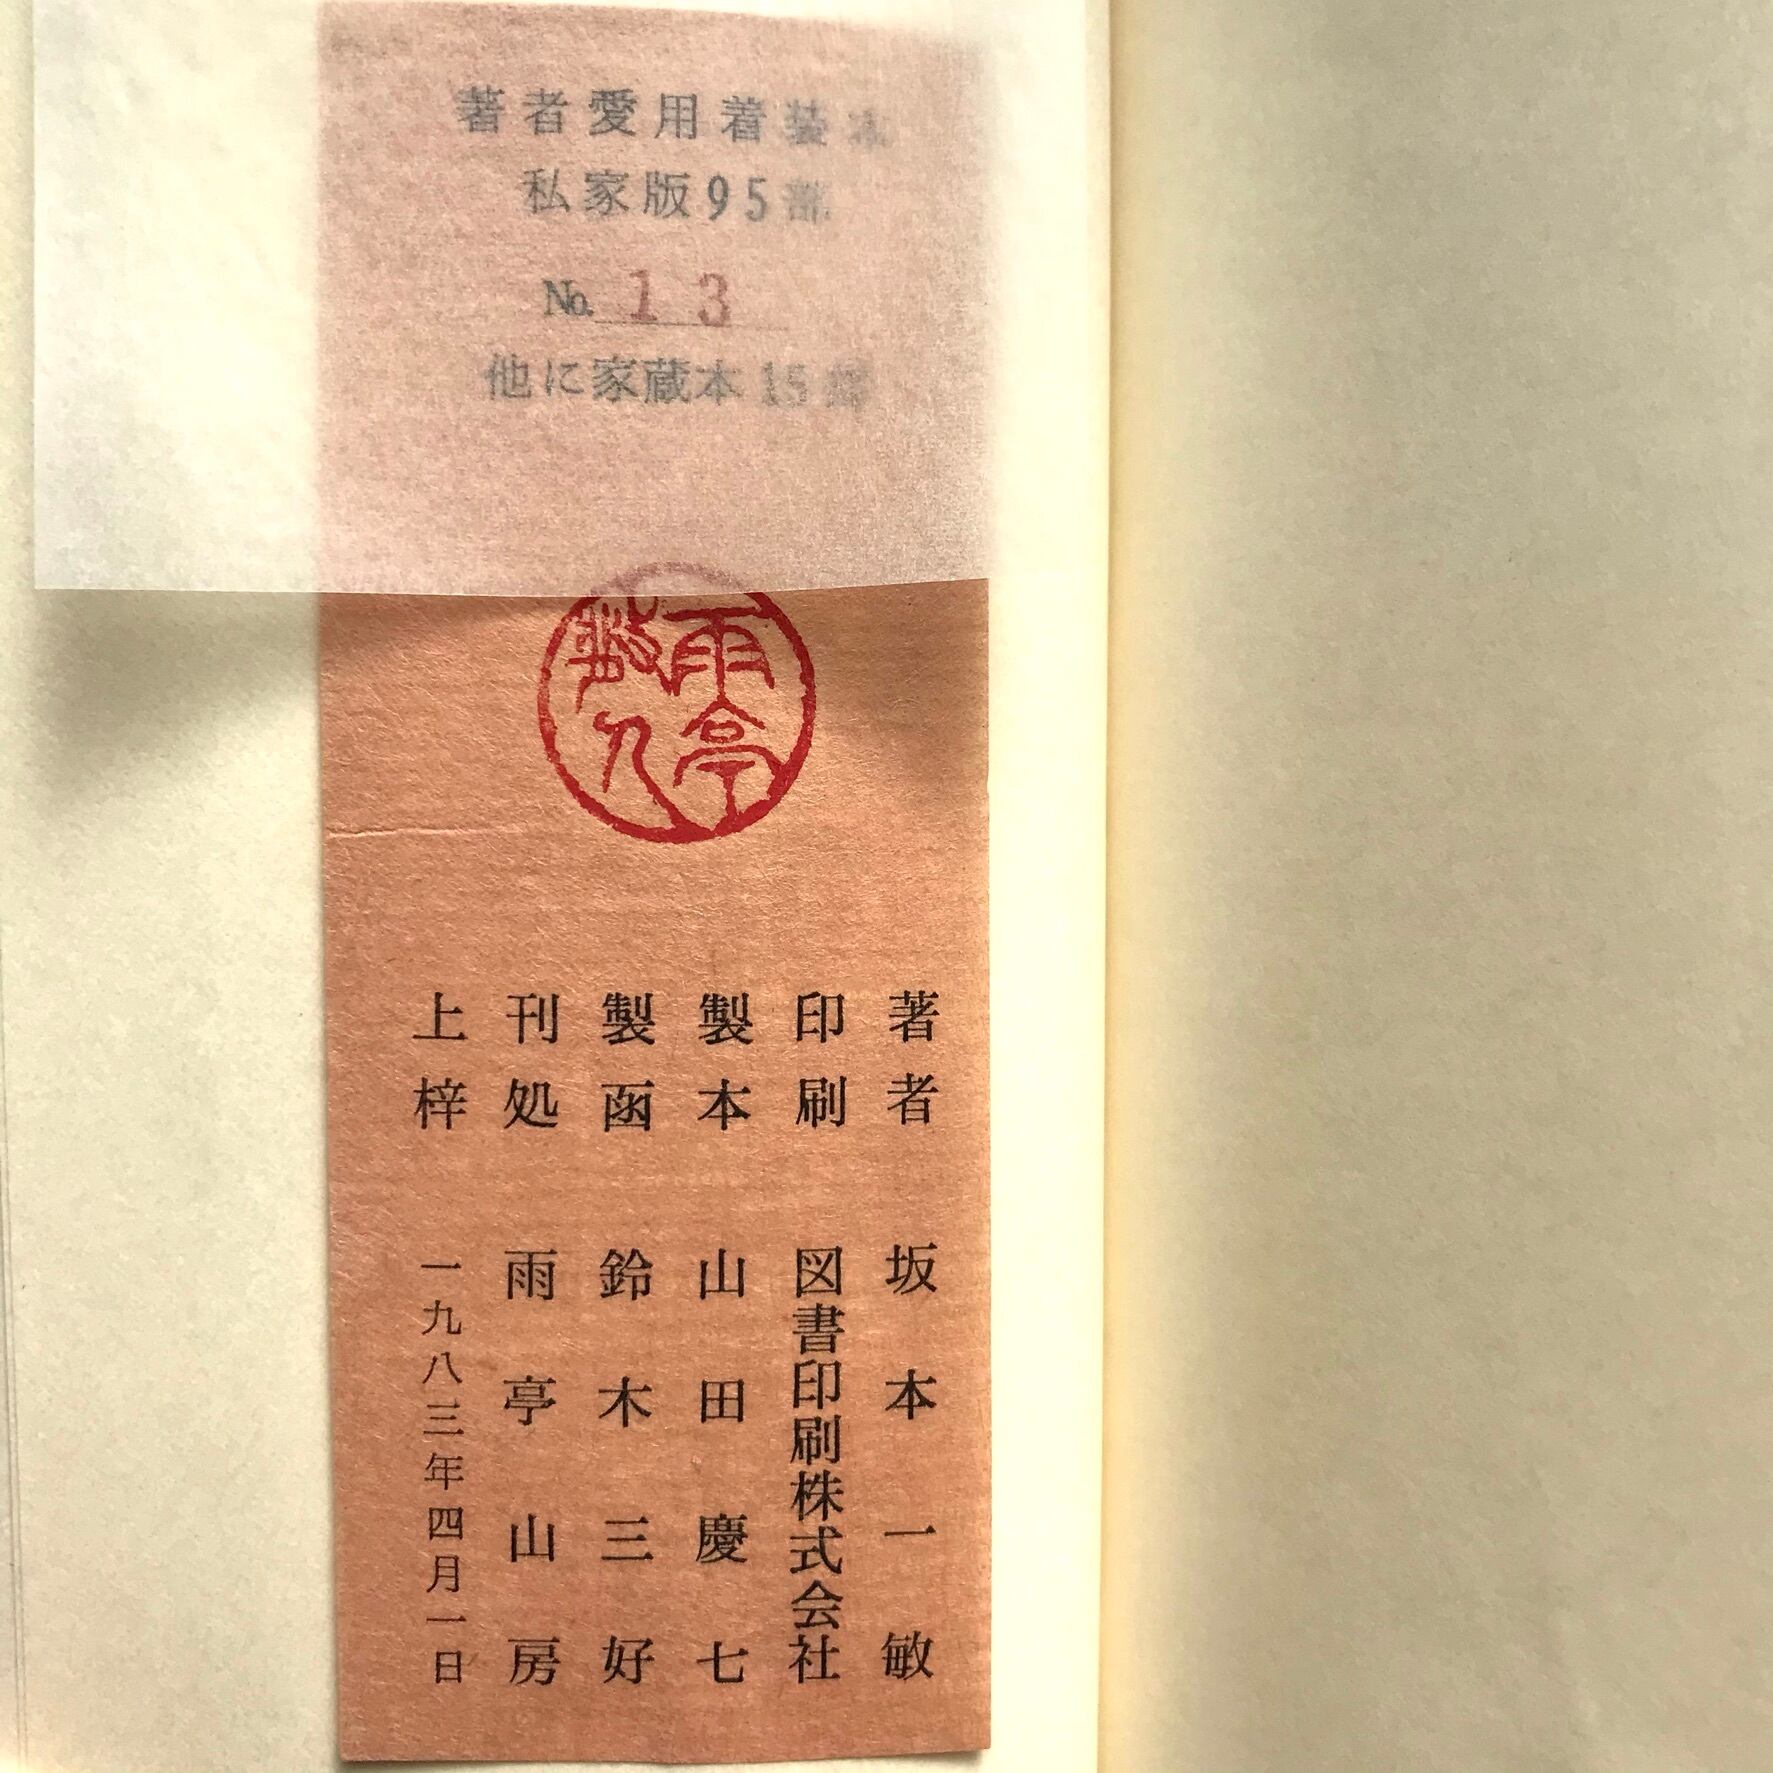 著者愛用着装本
私家版95部
No. 13
他に家蔵本15部
雨亭
著者 坂本一敏
印刷 図書印刷株式会社
製本 山田慶七
製函 鈴木三好
刊処 雨亭山房
上梓 一九八三年四月一日